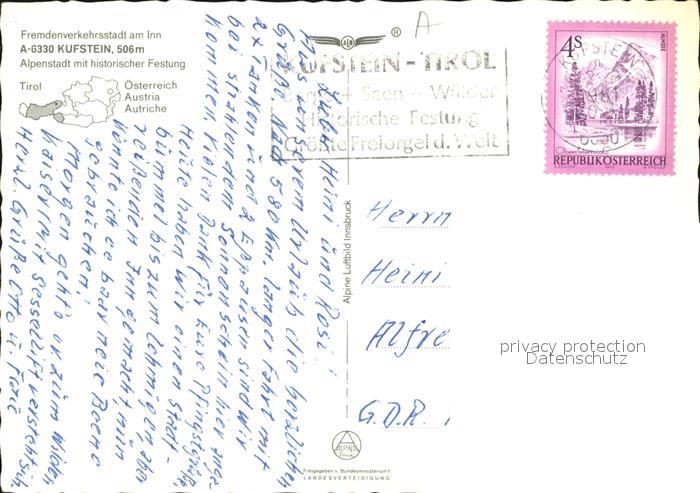 Fremdenverkehrsstadt am Inn
A-6330 KUFSTEIN, 506 m
Alpenstadt mit historischer Festung
Tirol
Österreich
Austria
Autriche
A
®
KUFSTEIN - TIROL
Berge + Seen - Wälder
Historische Festung
Größte Freiorgel d. Welt
KUFSTEIN
4S
ALMSEE
REPUBLIK ÖSTERREICH
Lieber Heini und Rosi!
Aus unserem Urlaub die herzlichen
Grüße. Nach 580 km langer Fahrt mit
2x Tanken und 2 Esspausen sind wir
bei strahlendem Sonnenschein hier ange-
kommen. Vielen Dank für Eure Pfingstgrüße
Heute haben wir einen Stadt
bummel bis zum
reißenden Inn gemacht, nun
könnte ich ebbaar neie Beene
gebrauchen!
Morgen geht's zum Wilden
Kaiser mit Sessellift versteht sich
Herzl. Grüße Otto u.
Alpine Luftbild Innsbruck
Herrn
Heini
Alfre
G.D.R.
ALPINE
Freigegeben v. Bundesministerium f.
LANDESVERTEIDIGUNG
privacy protection
Datenschutz